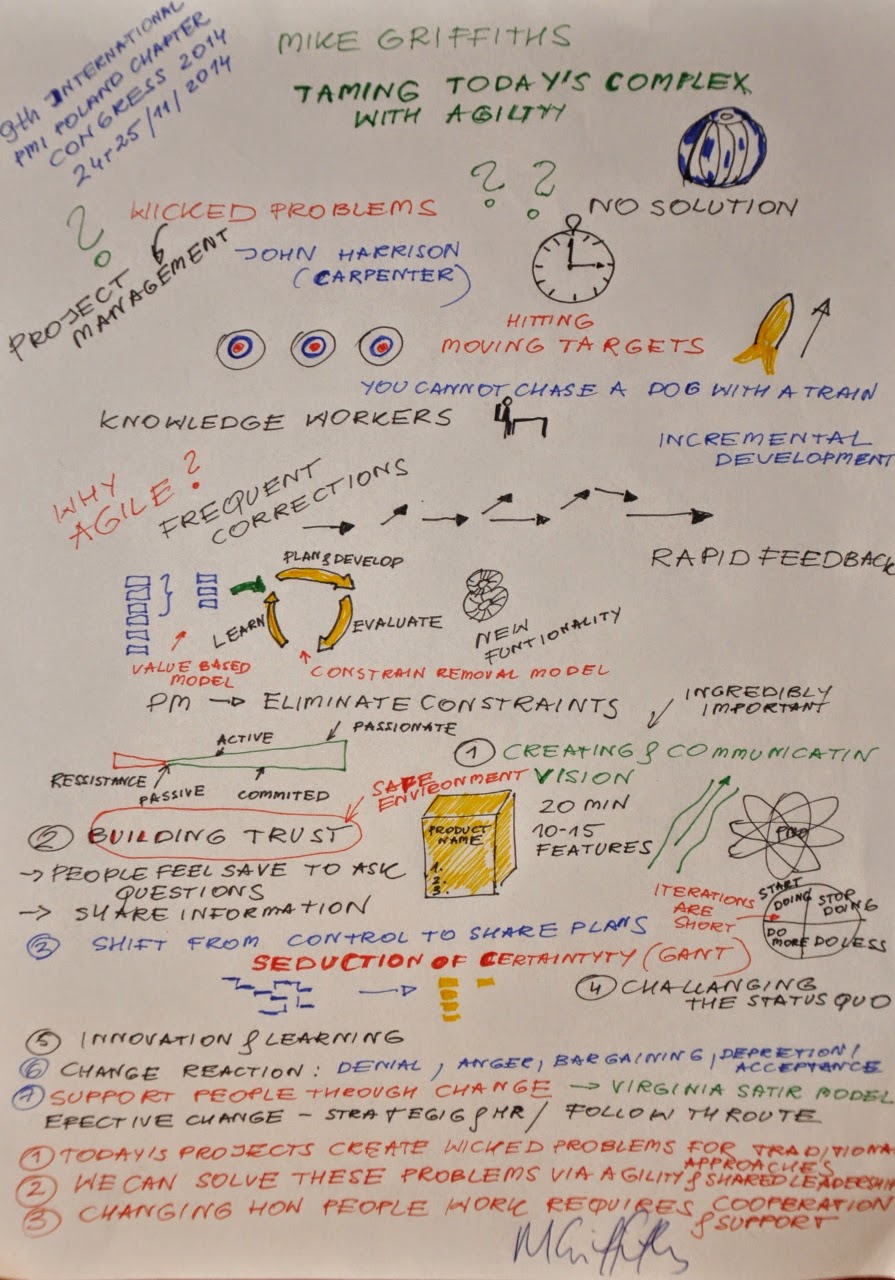 9th INTERNATIONAL
PMI POLAND CHAPTER
CONGRESS 2014
24-25/11/2014
MIKE GRIFFITHS
TAMING TODAY'S COMPLEX
WITH AGILTY
? ?
?
WICKED PROBLEMS
NO SOLUTION
PROJECT
MANAGEMENT
JOHN HARRISON
(CARPENTER)
HITTING
MOVING TARGETS
YOU CANNOT CHASE A DOG WITH A TRAIN
KNOWLEDGE WORKERS
INCREMENTAL
DEVELOPMENT
WHY
AGILE?
FREQUENT
CORRECTIONS
RAPID FEEDBACK
PLAN & DEVELOP
LEARN
EVALUATE
NEW
FUNTIONALITY
VALUE BASED
MODEL
CONSTRAIN REMOVAL MODEL
PM → ELIMINATE CONSTRAINTS
INCREDIBLY
IMPORTANT
PASSIONATE
ACTIVE
RESSISTANCE
PASSIVE
COMMITED
1 CREATING & COMMUNICATIN
VISION
SAFE
ENVIRONMENT
2 BUILDING TRUST
PRODUCT
NAME
1.
2.
3.
20 MIN
10-15
FEATURES
→ PEOPLE FEEL SAVE TO ASK
QUESTIONS
→ SHARE INFORMATION
ITERATIONS
ARE
SHORT
START
DOING
STOP
DOING
DO
MORE
DO LESS
3 SHIFT FROM CONTROL TO SHARE PLANS
SEDUCTION OF CERTAINTYTY (GANT)
4 CHALLANGING
THE STATUS QUO
5 INNOVATION & LEARNING
6 CHANGE REACTION: DENIAL, ANGER, BARGAINING, DEPRETION/
ACCEPTANCE
7 SUPPORT PEOPLE THROUGH CHANGE → VIRGINIA SATIR MODEL
EFECTIVE CHANGE - STRATEGIG & HR / FOLLOW THROUTE
1 TODAY'S PROJECTS CREATE WICKED PROBLEMS FOR TRADITIONA
APPROACHES
2 WE CAN SOLVE THESE PROBLEMS VIA AGILITY & SHARED LEADERSHI
3 CHANGING HOW PEOPLE WORK REQUIRES COOPERATION
& SUPPORT
MGriffiths